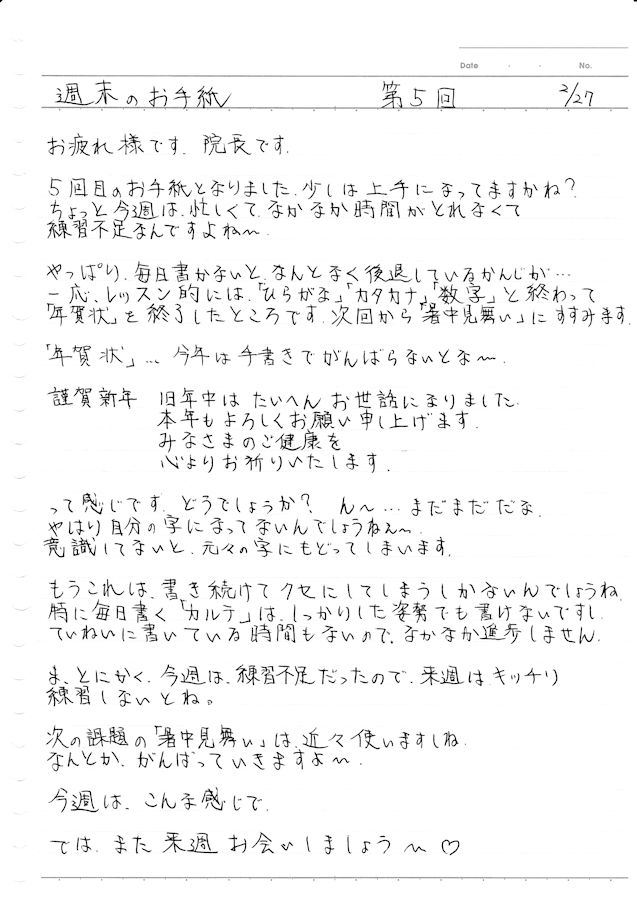 Date ・ ・ No.
週末のお手紙 第5回 2/27
お疲れ様です. 院長です.
5回目のお手紙となりました. 少しは上手になってますかね?
ちょっと今週は、忙しくて、なかなか時間がとれなくて
練習不足なんですよね〜.
やっぱり、毎日書かないと、なんとなく後退しているかんじが…
一応、レッスン的には、「ひらがな」「カタカナ」「数字」と終わって
「年賀状」を終了したところです. 次回から「暑中見舞い」にすすみます.
「年賀状」… 今年は手書きでがんばらないとな〜.
謹賀新年 旧年中はたいへんお世話になりました.
本年もよろしくお願い申し上げます.
みなさまのご健康を
心よりお祈りいたします.
って感じです. どうでしょうか? ん〜… まだまだだな.
やはり自分の字になってないんでしょうねぇ〜.
意識してないと、元々の字にもどってしまいます.
もうこれは、書き続けてクセにしてしまうしかないんでしょうね.
特に毎日書く「カルテ」は、しっかりした姿勢でも書けないですし.
ていねいに書いている時間もないので、なかなか進歩しません.
ま、とにかく、今週は、練習不足だったので、来週はキッチリ
練習しないとね。
次の課題の「暑中見舞い」は、近々使いますしね.
なんとか、がんばっていきますよ〜.
今週は、こんな感じで.
では、また来週お会いしましょう〜♡